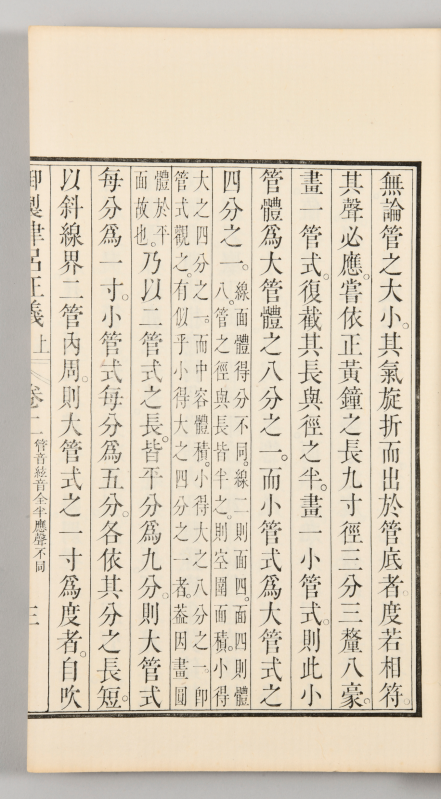 無論管之大小。其氣旋折而出於管底者。度若相符。
其聲必應。嘗依正黃鐘之長九寸徑三分三釐八豪。
畫一管式。復截其長與徑之半。畫一小管式。則此小
管體爲大管體之八分之一。而小管式爲大管式之
四分之一。線面體得分不同。線二則面四。面四則體
八。管之徑與長皆半之。則空圍面積。小得
大之四分之一。而中容體積。小得大之八分之一。卽
管式觀之。有似乎小得大之四分之一者。葢因畫圓
體於平
面故也。乃以二管式之長。皆平分爲九分。則大管式
每分爲一寸。小管式每分爲五分。各依其分之長短。
以斜線界二管內周。則大管式之一寸爲度者。自吹
御製律呂正義上 卷二 管音絃音全半應聲不同 三